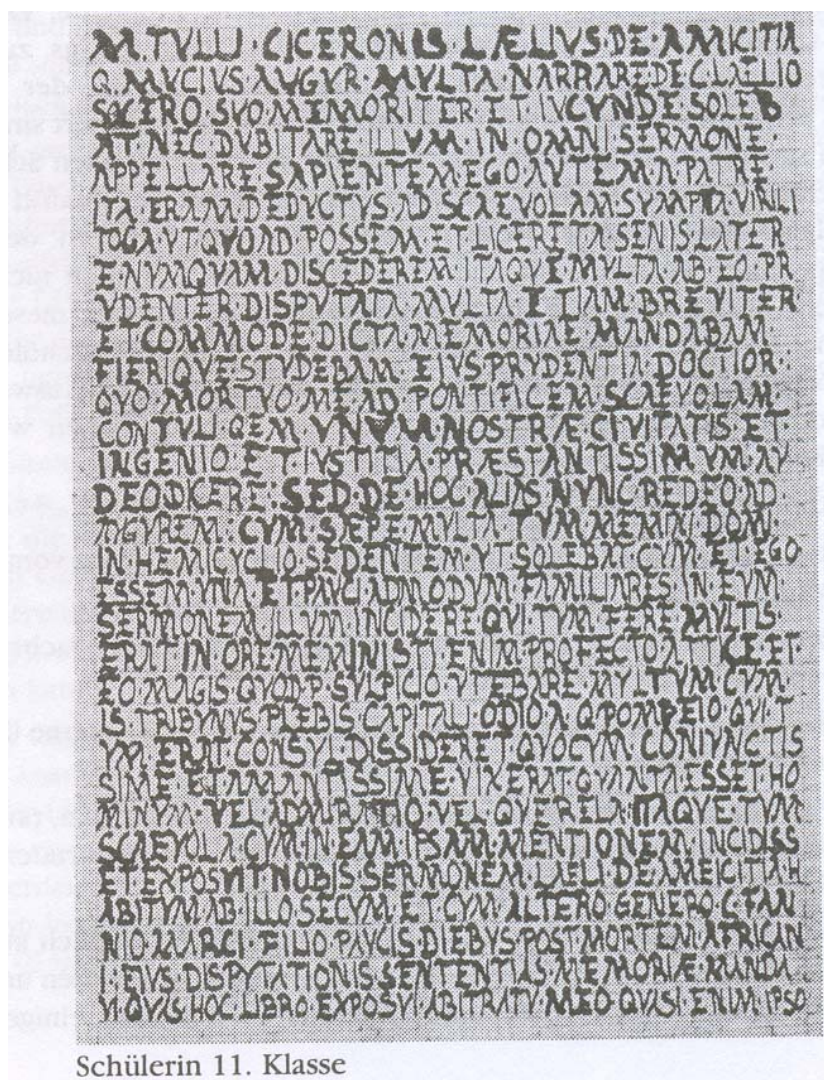 M·TVLLI·CICERONIS·LÆLIVS·DE·AMICITIA
Q·MVCIVS·AVGVR·MVLTA·NARRARE·DE·C·LAELIO
SOCERO·SVO·MEMORITER·ET·IVCVNDE·SOLEB
AT·NEC·DVBITARE·ILLVM·IN·OMNI·SERMONE·
APPELLARE·SAPIENTEM·EGO·AVTEM·A·PATRE·
ITA·ERAM·DEDVCTVS·AD·SCAEVOLAM·SVMPTA·VIRILI
TOGA·VT·QVOAD·POSSEM·ET·LICERET·A·SENIS·LATER
E·NVMQVAM·DISCEDEREM·ITAQVE·MVLTA·AB·EO·PR
VDENTER·DISPVTATA·MVLTA·ETIAM·BREVITER
ET·COMMODE·DICTA·MEMORIAE·MANDABAM·
FIERIQVE·STVDEBAM·EJVS·PRVDENTIA·DOCTIOR·
QVO·MORTVO·ME·AD·PONTIFICEM·SCAEVOLAM
CONTVLI·QEM·VNVM·NOSTRÆ·CIVITATIS·ET
INGENIO·ET·IVSTITIA·PRÆSTANTISSIMVM·AV
DEO·DICERE·SED·DE·HOC·ALIAS·NVNC·REDEO·AD
AVGVREM·CVM·SÆPE·MVLTA·TVM·MEMINI·DOMI·
IN·HEMICYCLIO·SEDENTEM·VT·SOLEBAT·CVM·ET·EGO
ESSEM·VNA·ET·PAVCI·ADMODVM·FAMILIARES·IN·EVM
SERMONEM·ILLVM·INCIDERE·QVI·TVM·FERE·MVLTIS
ERAT·IN·ORE·MEMINISTI·ENIM·PROFECTO·ATTICE·ET·
EO·MAGIS·QVOD·P·SVLPICIO·VTEBARE·MVLTVM·CVM
IS·TRIBVNVS·PLEBIS·CAPITALI·ODIO·A·Q·POMPEIO·QVI·T
VM·ERAT·CONSVL·DISSIDERET·QVOCVM·CONIVNCTIS
SIME·ET·AMANTISSIME·VIXERAT·QVANTA·ESSET·HO
MINVM·VEL·ADMIRATIO·VEL·QVERELA·ITAQVE·TVM
SCAEVOLA·CVM·IN·EAM·IPSAM·MENTIONEM·INCIDISS
ET·EXPOSVIT·NOBIS·SERMONEM·LAELI·DE·AMEICITIA·H
ABITVM·AB·ILLO·SECVM·ET·CVM·ALTERO·GENERO·C·FAN
NIO·MARCI·FILIO·PAVCIS·DIEBVS·POST·MORTEM·AFRICAN
I·EJVS·DISPVTATIONIS·SENTENTIAS·MEMORIÆ·MANDA
VI·QVAS·HOC·LIBRO·EXPOSVI·ABITRATV·MEO·QVASI·ENIM·IPSO
Schülerin 11. Klasse